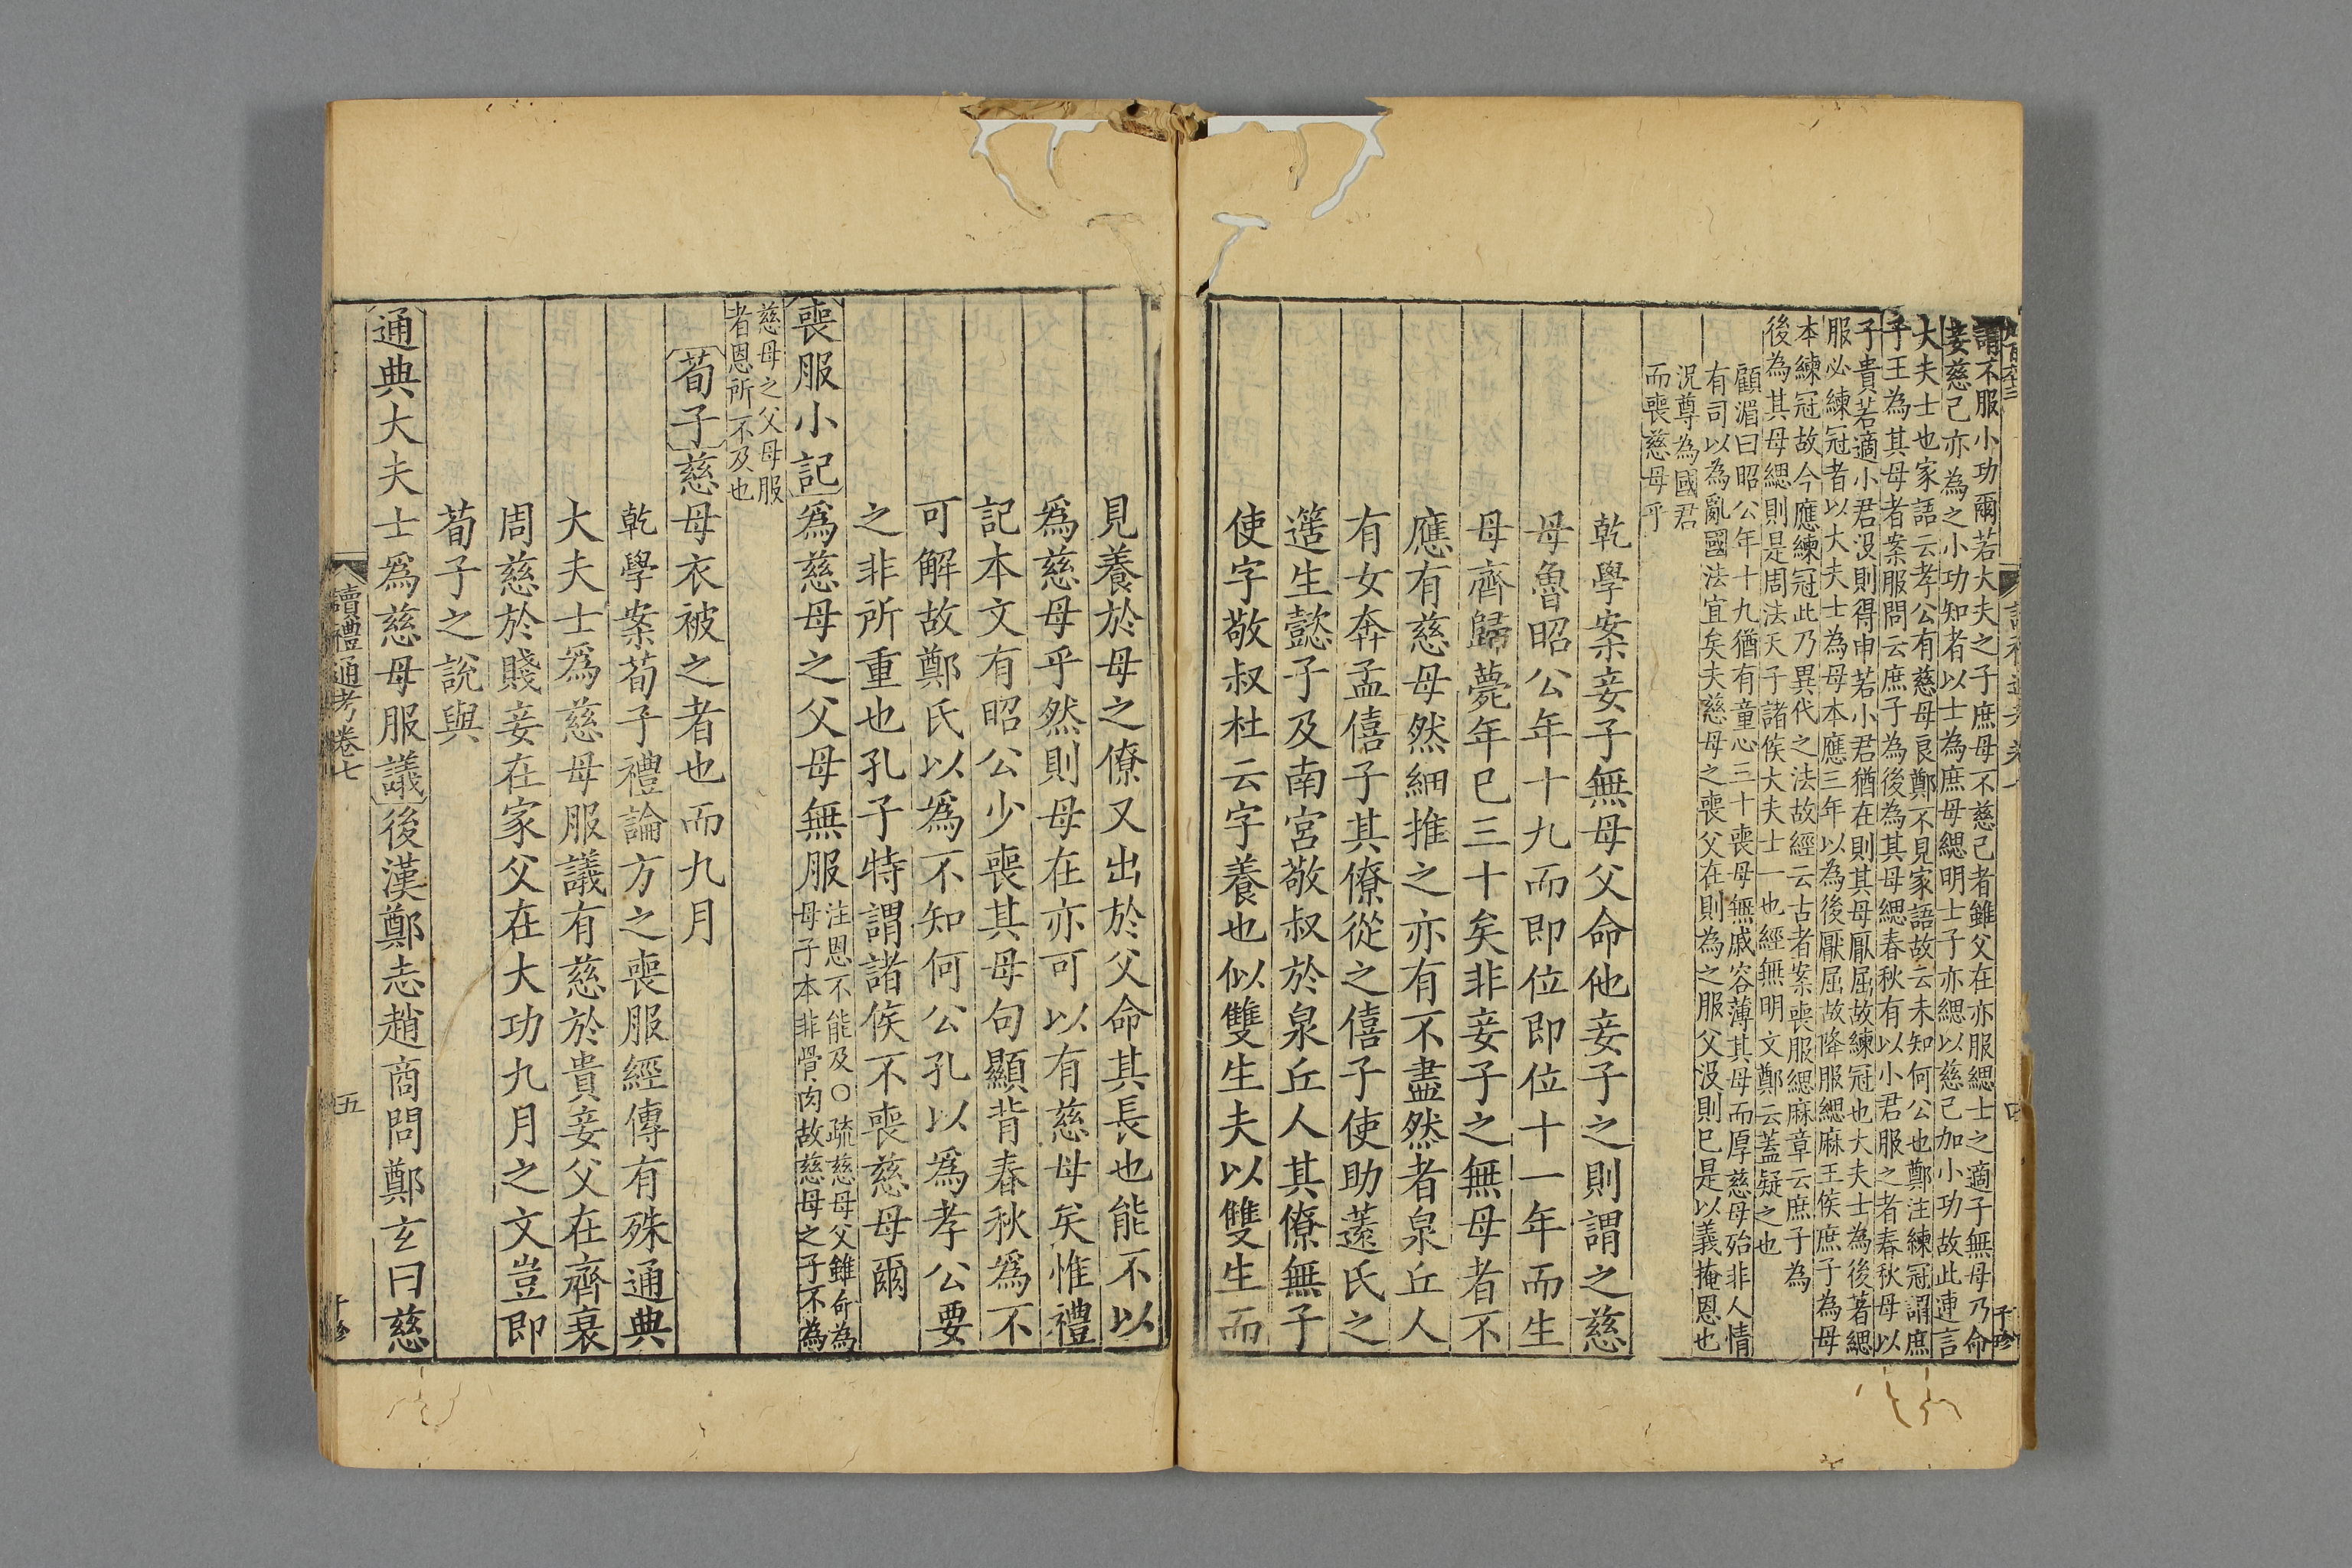 謂不服小功爾若大夫之子庶母不慈己者雖父在亦服緦士之適子無母乃命
妾慈己亦為之小功知者以士為庶母緦明士子亦緦以慈己加小功故此連言
大夫士也家語云孝公有慈母良鄭不見家語故云未知何公也鄭注練冠謂庶
子王為其母者案服問云庶子為後為其母緦春秋有以小君服之者春秋母以
子貴若適小君沒則得申若小君猶在則其母厭屈故練冠也大夫士為後著緦
服必練冠者以大夫士為母本應三年以為後厭屈故降服緦麻王侯庶子為母
本練冠故今應練冠此乃異代之法故經云古者案喪服緦麻章云庶子為
後為其母緦則是周法天子諸侯大夫士一也經無明文鄭云蓋疑之也
顧湄曰昭公年十九猶有童心三十喪母無戚容薄其母而厚慈母殆非人情
有司以為亂國法宜矣夫慈母之喪父在則為之服父沒則已是以義掩恩也
況尊為國君
而喪慈母乎
乾學案妾子無母父命他妾子之則謂之慈
母魯昭公年十九而即位即位十一年而生
母齊歸薨年已三十矣非妾子之無母者不
應有慈母然細推之亦有不盡然者泉丘人
有女奔孟僖子其僚從之僖子使助薳氏之
簉生懿子及南宮敬叔於泉丘人其僚無子
使字敬叔杜云字養也似雙生夫以雙生而
見養於母之僚又出於父命其長也能不以
爲慈母乎然則母在亦可以有慈母矣惟禮
記本文有昭公少喪其母句顯背春秋爲不
可解故鄭氏以爲不知何公孔以爲孝公要
之非所重也孔子特謂諸侯不喪慈母爾
喪服小記爲慈母之父母無服注恩不能及○疏慈母父雖命為
母子本非骨肉故慈母之子不為
慈母之父母服
者恩所不及也
荀子慈母衣被之者也而九月
乾學案荀子禮論方之喪服經傳有殊通典
大夫士爲慈母服議有慈於貴妾父在齊衰
周慈於賤妾在家父在大功九月之文豈即
荀子之說與
通典大夫士爲慈母服議後漢鄭志趙商問鄭玄曰慈
讀禮通考卷七
五